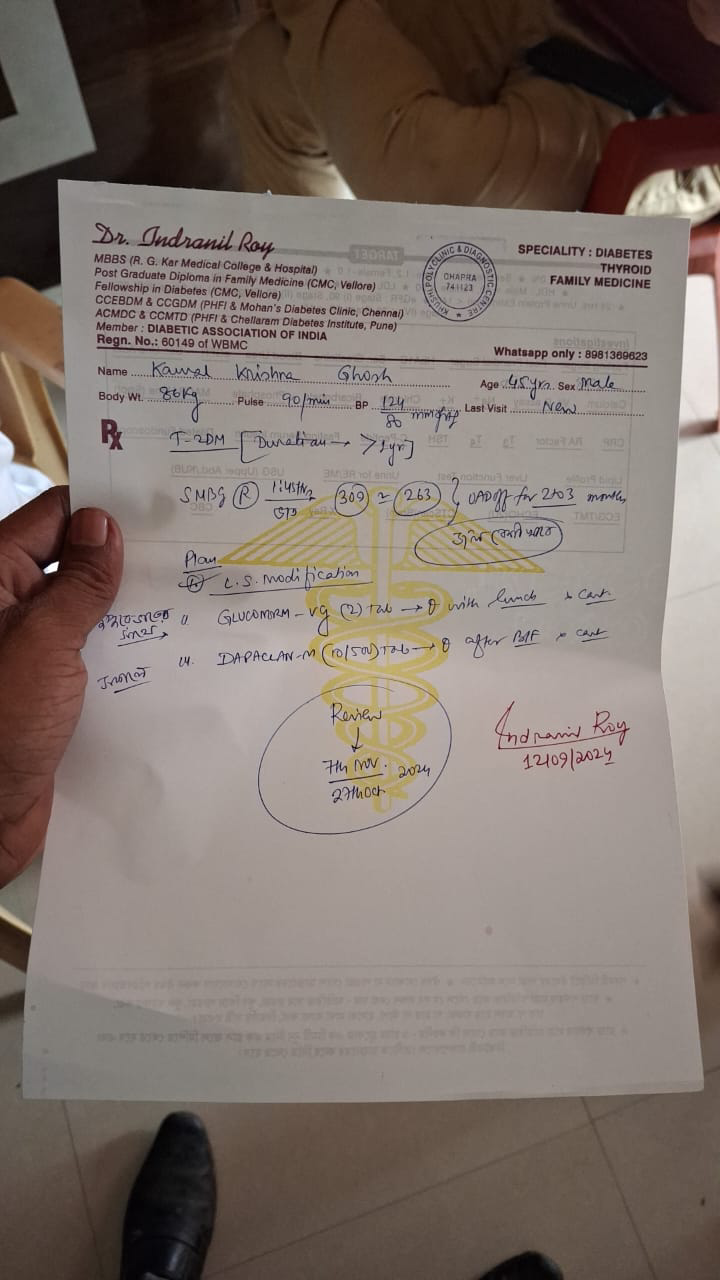 Dr. Indranil Roy
MBBS (R. G. Kar Medical College & Hospital)
Post Graduate Diploma in Family Medicine (CMC, Vellore)
Fellowship in Diabetes (CMC, Vellore)
CCEBDM & CCGDM (PHFI & Mohan's Diabetes Clinic, Chennai)
ACMDC & CCMTD (PHFI & Chellaram Diabetes Institute, Pune)
Member : DIABETIC ASSOCIATION OF INDIA
Regn. No.: 60149 of WBMC
KHUSHI POLYCLINIC & DIAGNOSTIC CENTRE
CHAPRA
741123
SPECIALITY : DIABETES
THYROID
FAMILY MEDICINE
Whatsapp only : 8981369623
Name Kamal Krishna Ghosh Age 45yrs. Sex Male
Body Wt. 86kg Pulse 90/min BP 124/80 mmHg Last Visit New
Rx
T-2DM [Duration → >1yr]
SMBG (R) 309 ~ 263 } OAD off for 2 to 3 months
Plan
L.S. modification
GLUCONORM-VG (2) tab → with lunch x cont.
DAPACLAN-M (10/500) tab → after B/F x cont
Review
↓
7th Nov. 2024
27th Oct
Indranil Roy
12/09/2024